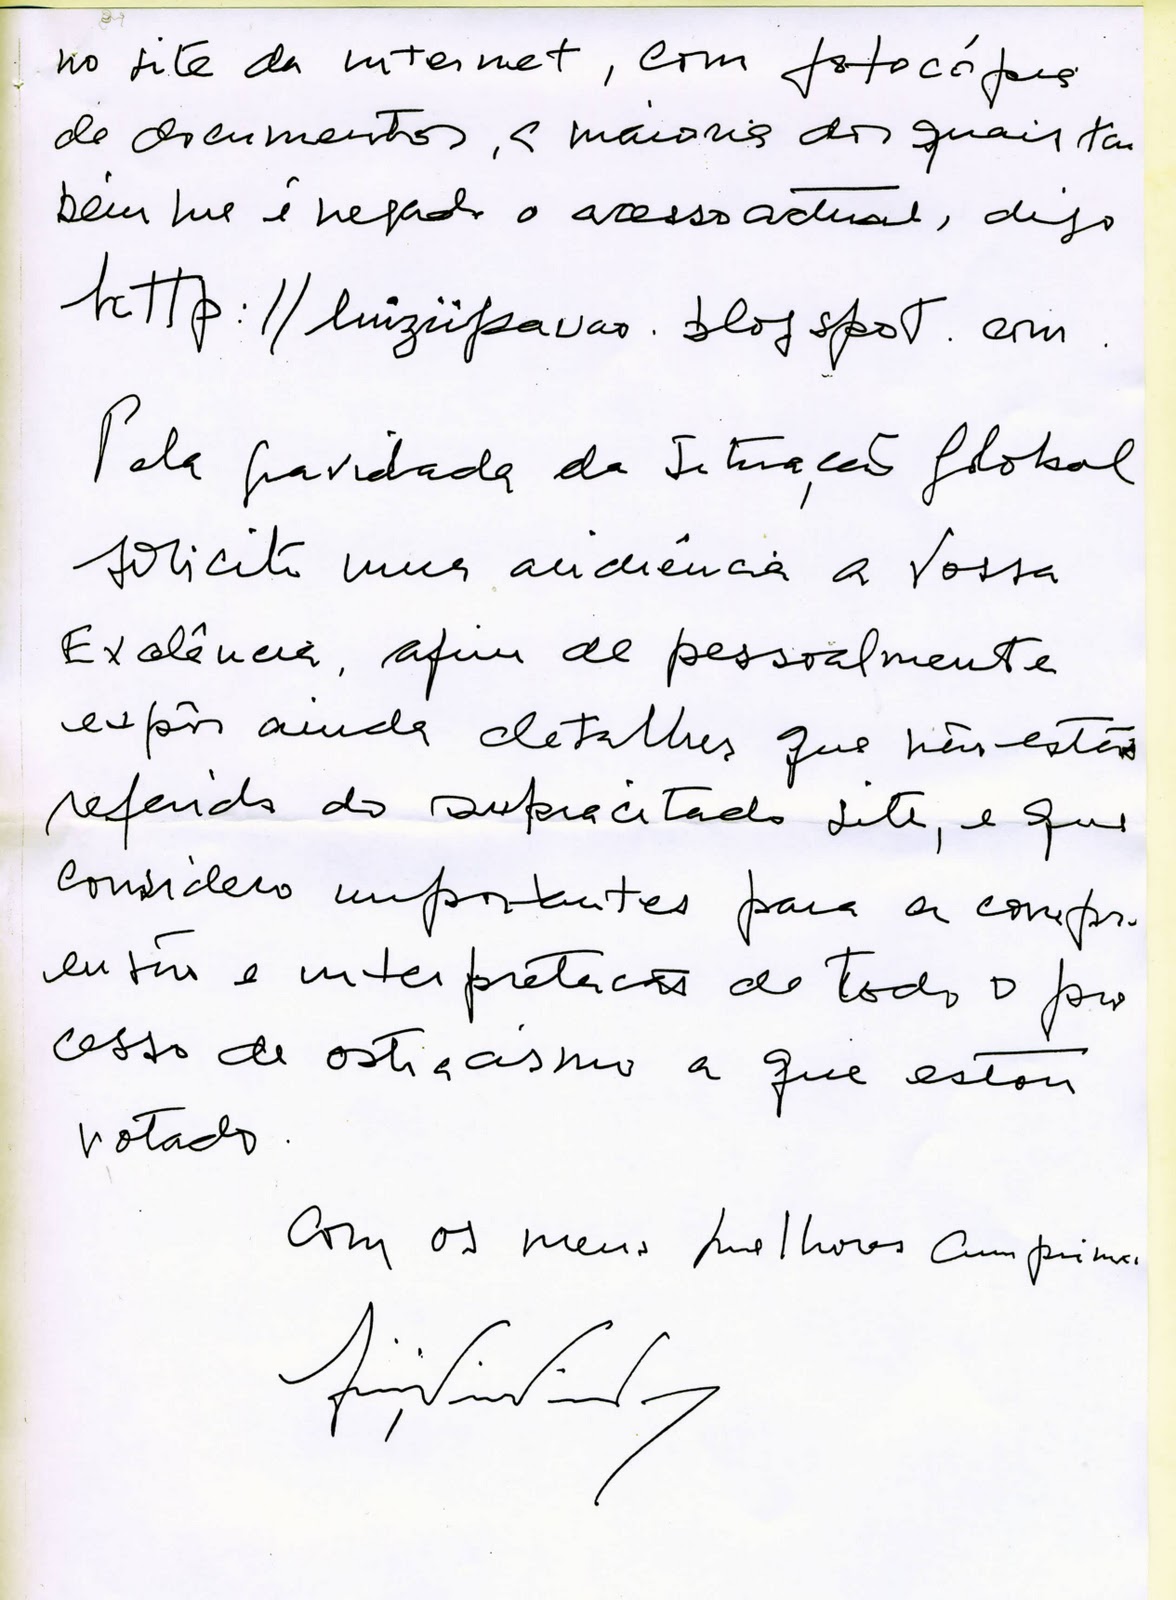 no site da internet, com fotocópias
de documentos, a maioria dos quais tam
bém me é negado o acesso actual, digo
http://luiziipavao.blogspot.com.
Pela gravidade da situação global
solicito uma audiência a Vossa
Exelência, afim de pessoalmente
expôr ainda detalhes que não estão
referido do supracitado site, e que
considero importantes para a compr.
ensão e interpretação de todo o pro
cesso de ostracismo a que estou
votado.
Com os meus melhores cumprim.